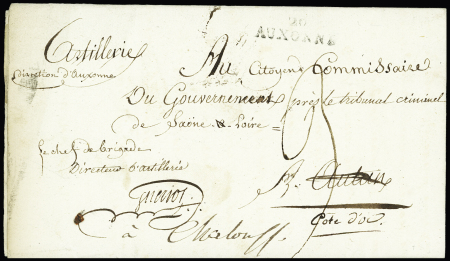 20
AUXONNE
Artillerie
Direction d'Auxonne
Au Citoyen Commissaire
Du Gouvernement près le tribunal criminel
de Saône & Loire
Le chef de brigade
Directeur d'artillerie
A Autun
Cote d'or.
à